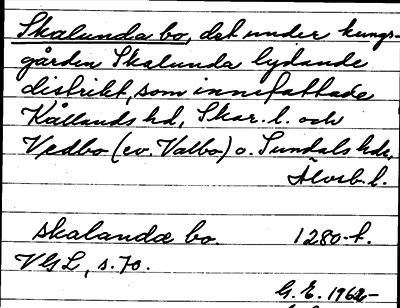 Skalunda bo, det under kungs-
gården Skalunda lydande
distrikt, som innefattade
Kållands hd, Skar. l. och
Vedbo (ev. Valbo) o. Sundals hdr,
Älvsb. l.
skalandæ bo. 1280-t.
VGL, s. 70.
G. E. 1962-